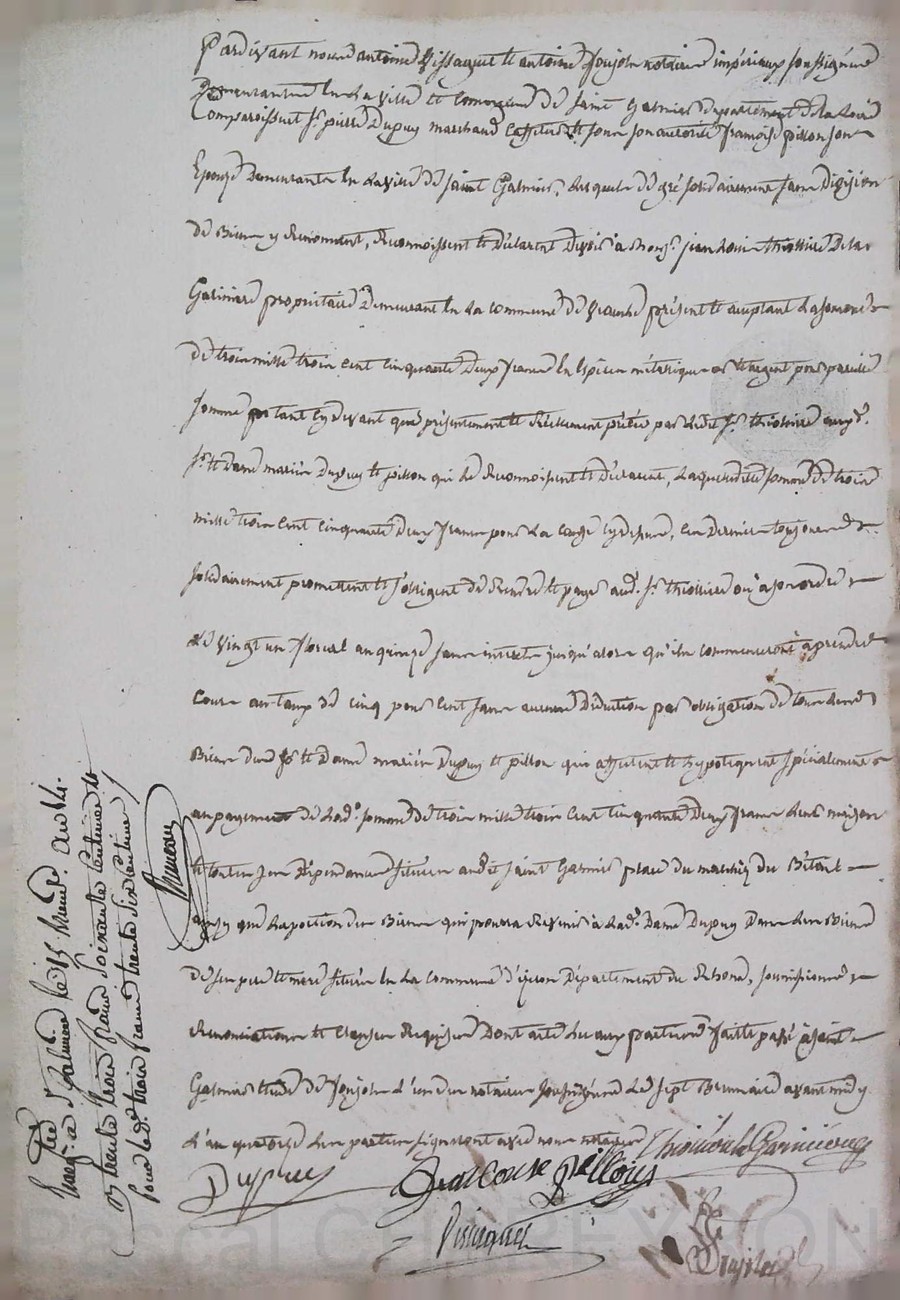 Pardevant nous antoine Vissaguet et antoine Goujoln notaires impériaux soussignés
Demeurants En la ville et Commune de saint Galmier département de la Loire
Comparoissent Sr pierre Dupuy marchand Cafetier et sous son autorité françoise pillon son
Epouze Demeurants En la ville de saint Galmier, lesquels de gré solidairement sans Division
de Biens y Renonceant, Reconnoissent et Déclarent Devoir à Monsr. jean louis thiollière Dela
Garinière propriétaire Demeurant En la commune de présent et acceptant la somme
de trois mille trois cent cinquante Deux francs En Espèces métalliques et d'argent pour pareille
somme portant Cydevant que présentement et Réellement prêtée par ledit Sr. thiollière auxds.
Sr. et dame mariés Dupuy et pillon qui le Reconnoissent et Déclarent, laquelle ditte somme de trois
mille trois Cent Cinquante Deux francs pour la Cause Cydessus, Ces Derniers toujours
solidairement promettent et s'obligent de Rendre et payer aud. Sr. thiollière ou à son ordre
le vingt un floréal an quinze sans intérêts jusqu'alors qu'ils commenceront à prendre
Cours au taux de cinq pour Cent sans aucune Déduction par obligation de tous leurs
Biens desd. Srs et Dame mariés Dupuy et pillon qui affectent et hypotèquent spécialement
au payement de lade. somme de trois mille trois Cent Cinquante Deux francs leurs maison
et toutes ses Dépendances située audit saint Galmier place du marché du Bétail
ainsy que la portion des Biens qui pourra Revenir à lade. Dame Dupuy Dans les Biens
de ses père et mère située En la Commune d' Département du Rhône, soumissions
Renonciations et Clauses Requises Dont acte lu aux parties fait et passé à saint
Galmier étude de Goujoln l'un des notaires soussignés le sept Brumaire avant midy
l'an quatorze les parties signeront avec nous notaires Thiollière la Garinière
Dupuy françoise pillon
Vissaguet
Goujoln
Enregé. à St galmier le 15 Brum. an 14.
R. trente trois francs soixante centimes et
pour le de. trois francs trente six centimes